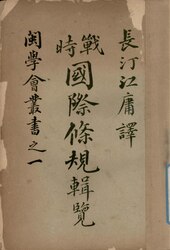 長汀江庸譯
戰時國際條規輯覽
閩學會叢書之一